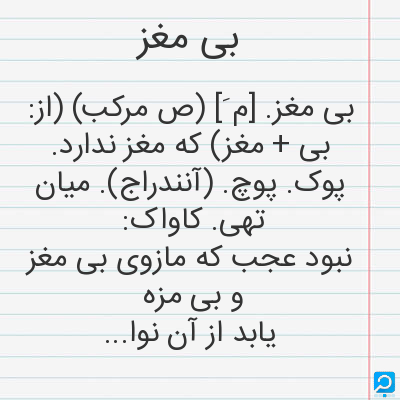 بی مغز
بی مغز. [م َ] (ص مرکب) (از:
بی + مغز) که مغز ندارد.
پوک. پوچ. (آنندراج). میان
تهی. کاواک:
نبود عجب که مازوی بی مغز
و بی مزه
یابد از آن نوا...